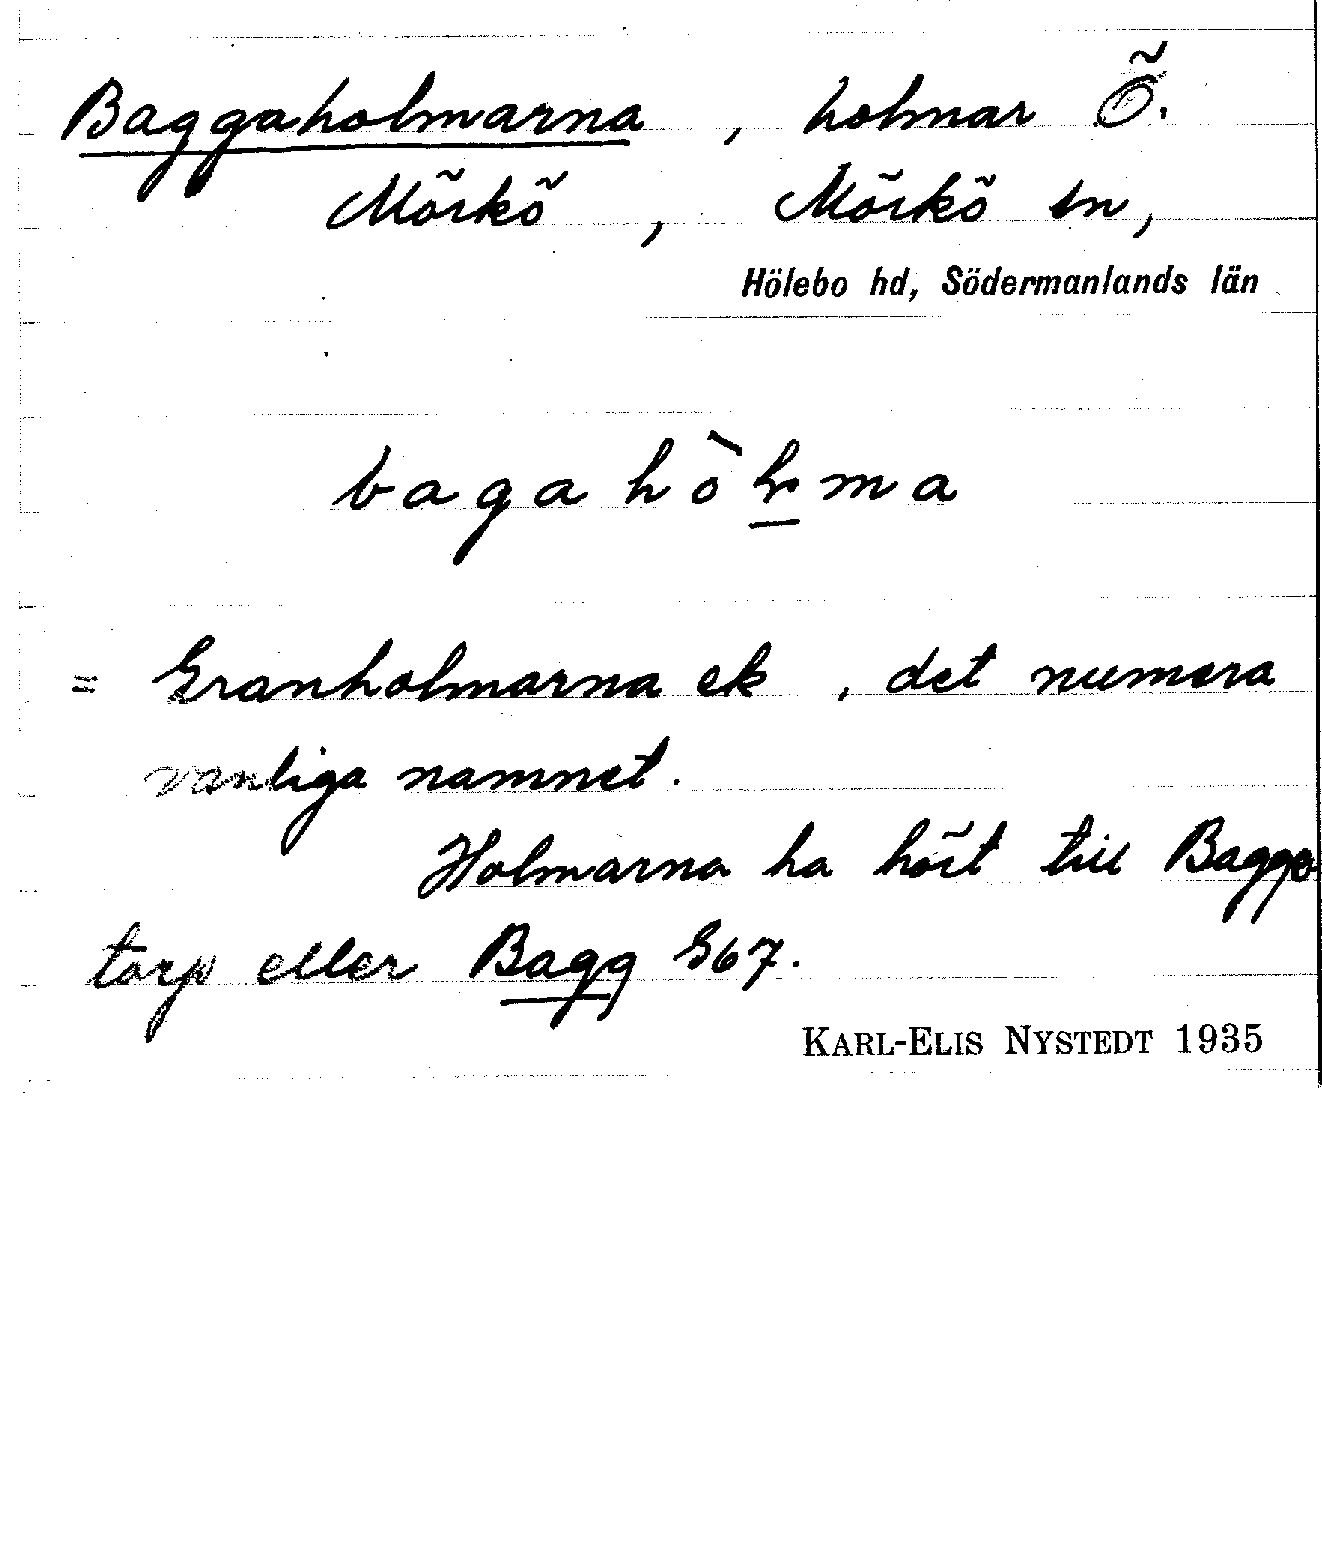 Baggaholmarna, holmar Ö.
Mörkö, Mörkö sn,
Hölebo hd, Södermanlands län
= Granholmarna ek, det numera
vanliga namnet.
Holmarna ha hört till Bagge
torp eller Bagg G67.
KARL-ELIS NYSTEDT 1935